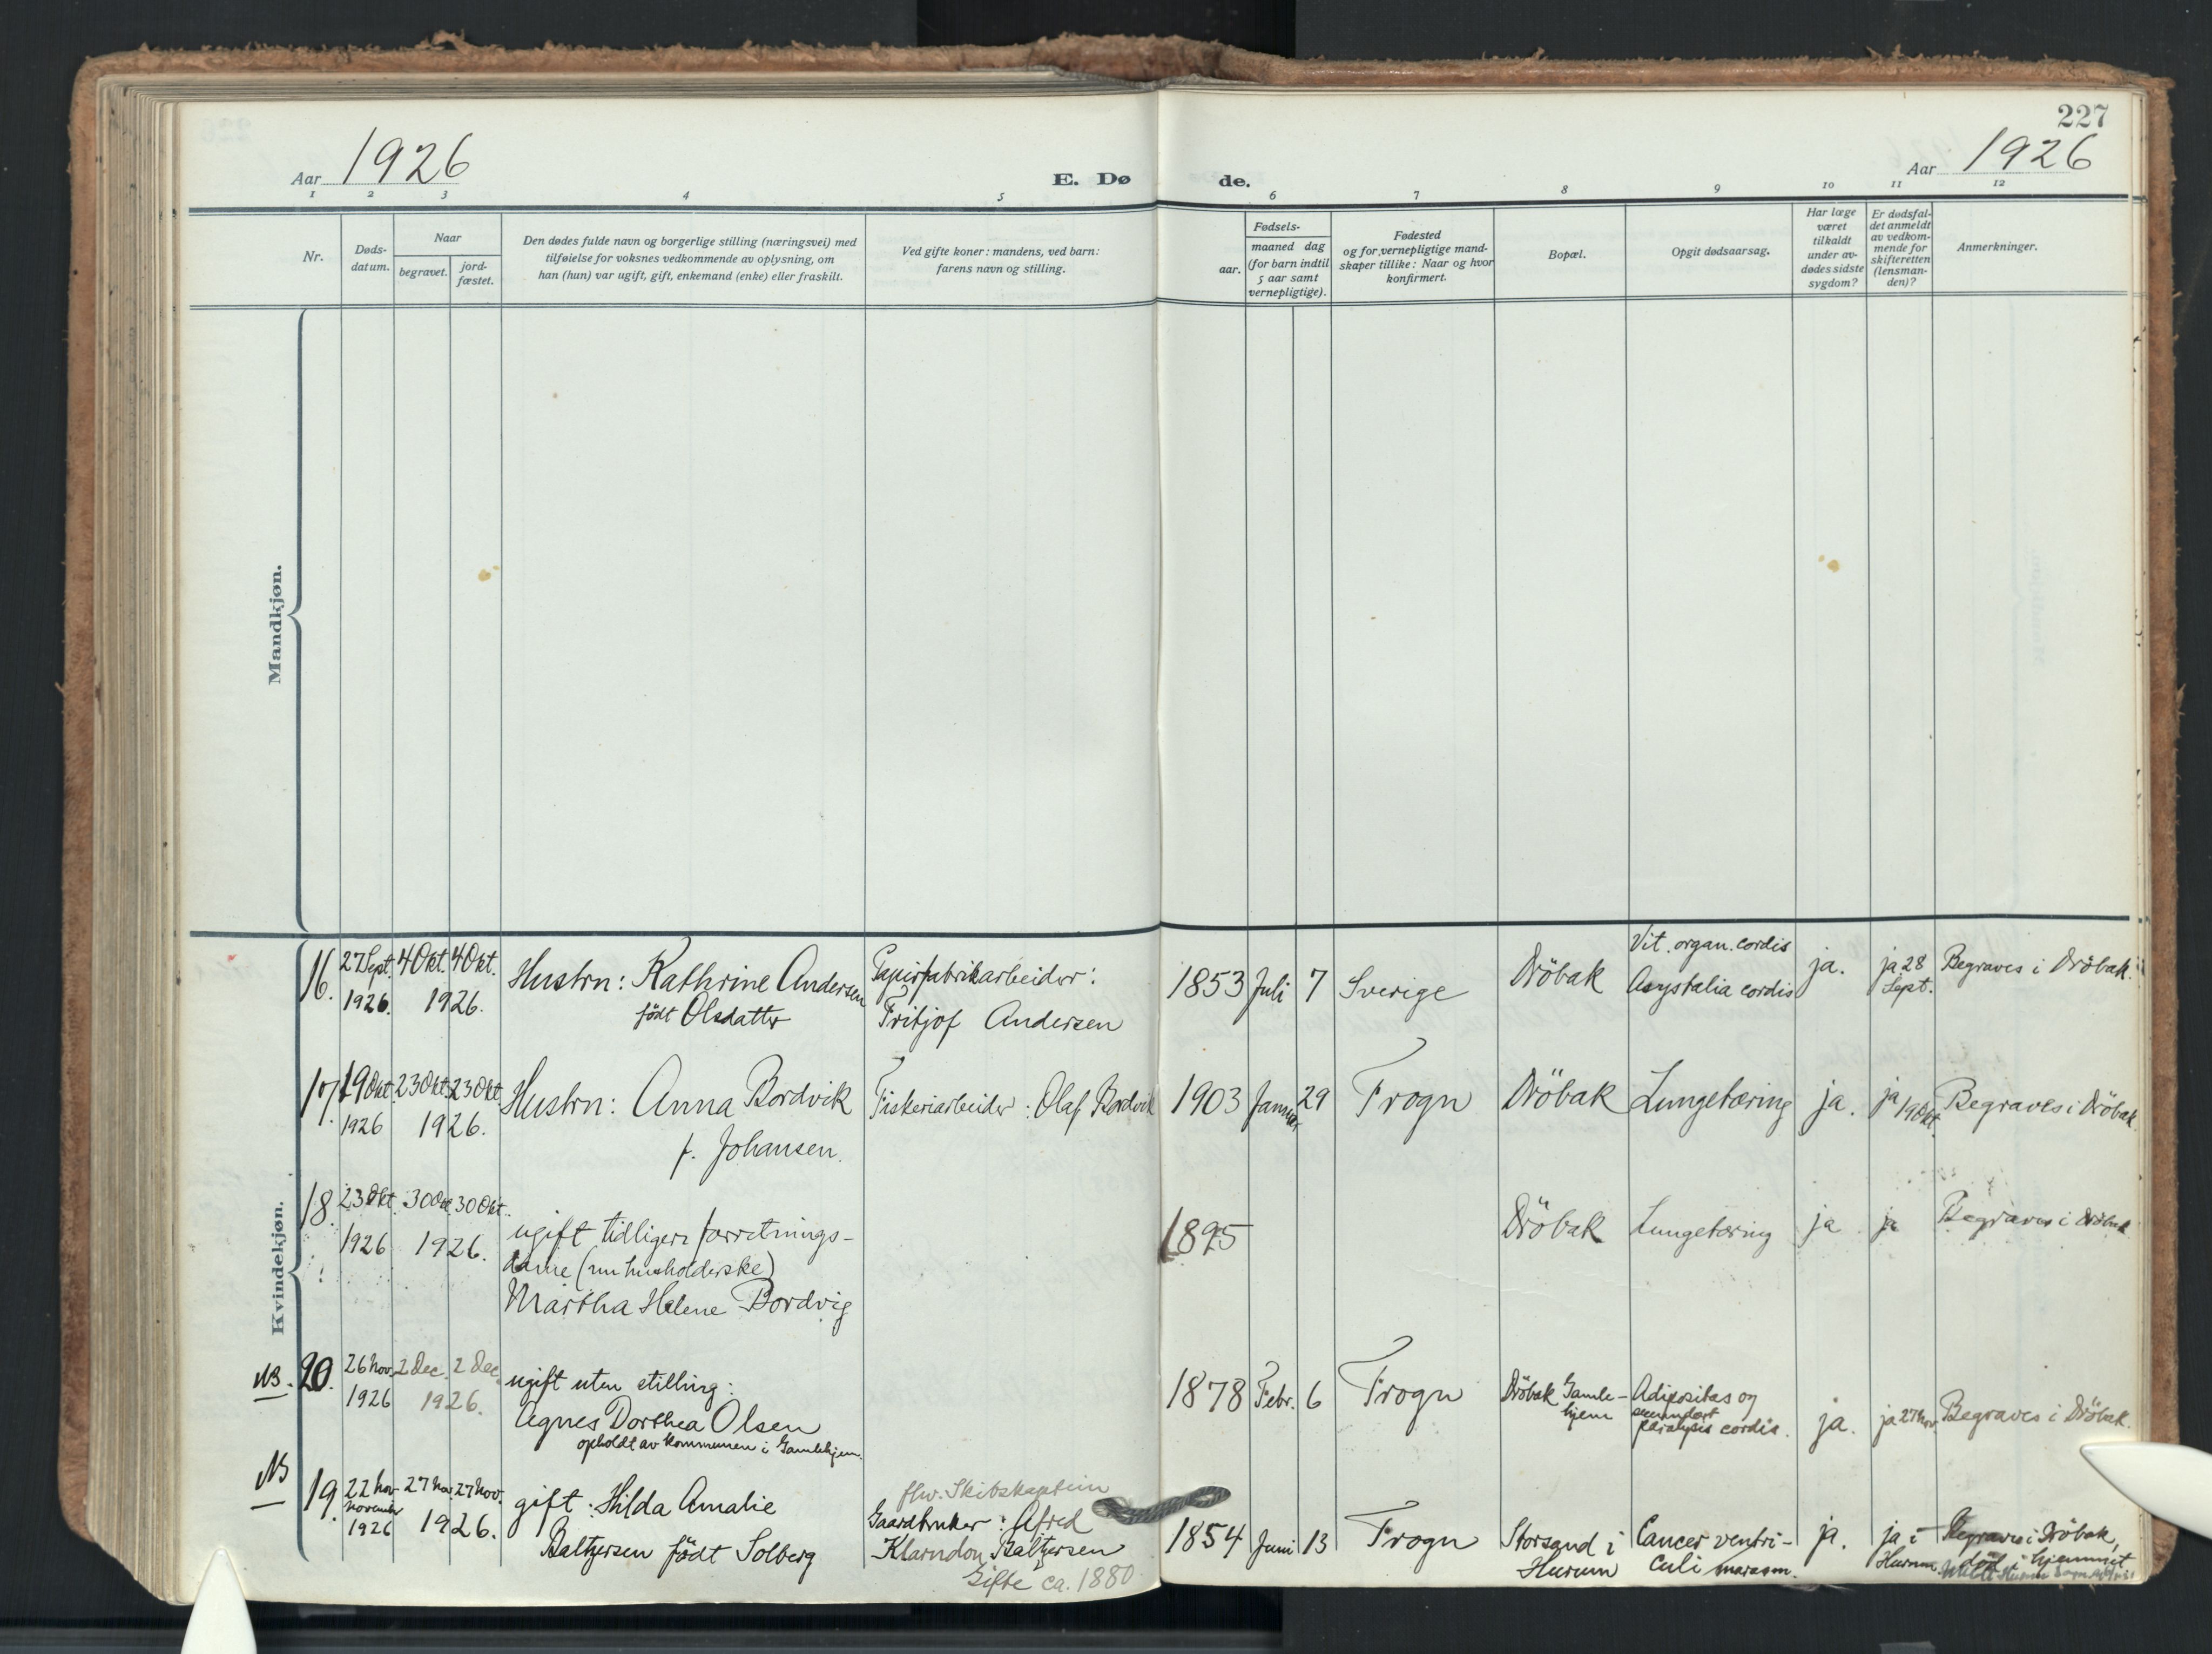 227
Aar 1926
E. Dø de.
Aar 1926
1 2 3 4 5 6 7 8 9 10 11 12
Nr.
Døds-
datum.
Naar
begravet.
jord-
fæstet.
Den dødes fulde navn og borgerlige stilling (næringsvei) med
tilføielse for voksnes vedkommende av oplysning, om
han (hun) var ugift, gift, enkemand (enke) eller fraskilt.
Ved gifte koner: mandens, ved barn:
farens navn og stilling.
Fødsels-
aar.
maaned dag
(for barn indtil
5 aar samt
vernepligtige).
Fødested
og for vernepligtige mand-
skaper tillike: Naar og hvor
konfirmert.
Bopæl.
Opgit dødsaarsag.
Har læge
været
tilkaldt
under av-
dødes sidste
sygdom?
Er dødsfal-
det anmeldt
av vedkom-
mende for
skifteretten
(lensman-
den)?
Anmerkninger.
Mandkjøn.
Kvindekjøn.
16.
27 Sept.
1926.
4 Okt. 4 Okt.
1926.
Hustru: Kathrine Andersen
født Olsdatter
Papirfabrikarbeider:
Fritjof Andersen
1853 Juli 7
Sverige
Dröbak
Vit. organ. cordis
Asystalia cordis
ja.
ja 28
Sept.
Begraves i Dröbak.
17.
19 Okt.
1926
23 Okt. 23 Okt.
1926.
Hustru: Anna Bordvik
f. Johansen.
Fiskeriarbeider: Olaf Bordvik
1903 Januar 29
Frogn
Dröbak
Lungetæring
ja.
ja
19 Okt.
Begraves i Dröbak.
18.
23 Okt.
1926
30 Okt. 30 Okt.
1926.
ugift tidligere forretnings-
dame (nu husholderske)
Martha Helene Bordvig
1895
Dröbak
Lungetæring
ja
ja
Begraves i Dröbak
NB. 20.
26 Nov.
1926
2 Dec. 2 Dec.
1926.
ugift uten stilling:
Agnes Dorthea Olsen
opholdt av kommunen i Gamlehjem.
1878 Febr. 6
Frogn
Dröbak Gamle-
hjem
Adipositas og
secundært
paralysis cordis.
ja.
ja 27 Nov.
Begraves i Dröbak.
NB
19.
22 Nov
November
1926
27 Nov. 27 Nov.
1926.
gift: Hilda Amalie
Baltzersen født Solberg
fhv. Skibskaptein
Gaardbruker: Alfred
Klarndon Baltzersen
Gifte ca. 1880.
1854 Juni 13
Frogn
Storsand i
Hurum
Cancer ventri-
culi marasm.
ja.
ja i
Hurum
Begraves i Dröbak,
død i hjemmet